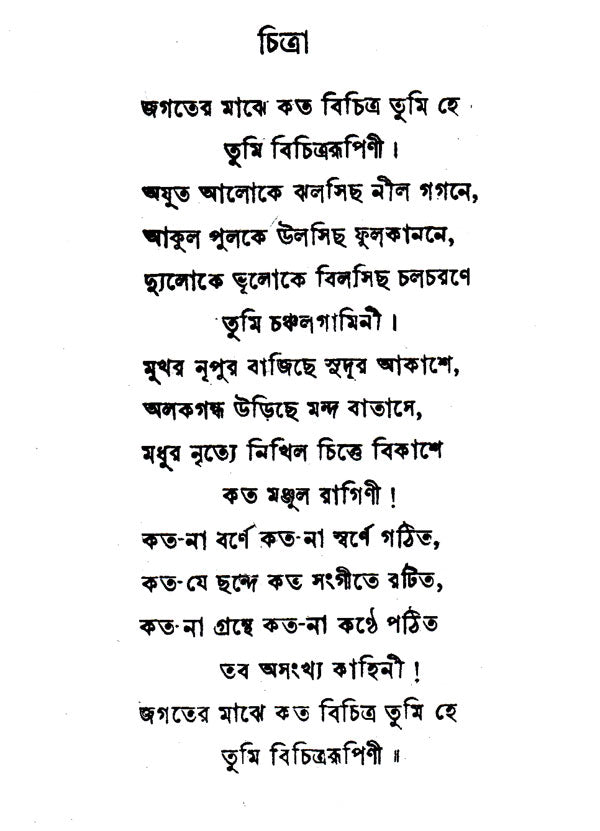 চিত্রা
জগতের মাঝে কত বিচিত্র তুমি হে
তুমি বিচিত্ররূপিণী ।
অযুত আলোকে ঝলসিছ নীল গগনে,
আকুল পুলকে উলসিছ ফুলকাননে,
দ্যুলোকে ভূলোকে বিলসিছ চলচরণে
তুমি চঞ্চলগামিনী ।
মুখর নূপুর বাজিছে সুদূর আকাশে,
অলকগন্ধ উড়িছে মন্দ বাতাসে,
মধুর নৃত্যে নিখিল চিত্তে বিকাশে
কত মঞ্জুল রাগিণী !
কত-না বর্ণে কত-না স্বর্ণে গঠিত,
কত-যে ছন্দে কত সংগীতে রটিত,
কত-না গ্রন্থে কত-না কণ্ঠে পঠিত
তব অসংখ্য কাহিনী !
জগতের মাঝে কত বিচিত্র তুমি হে
তুমি বিচিত্ররূপিণী ॥